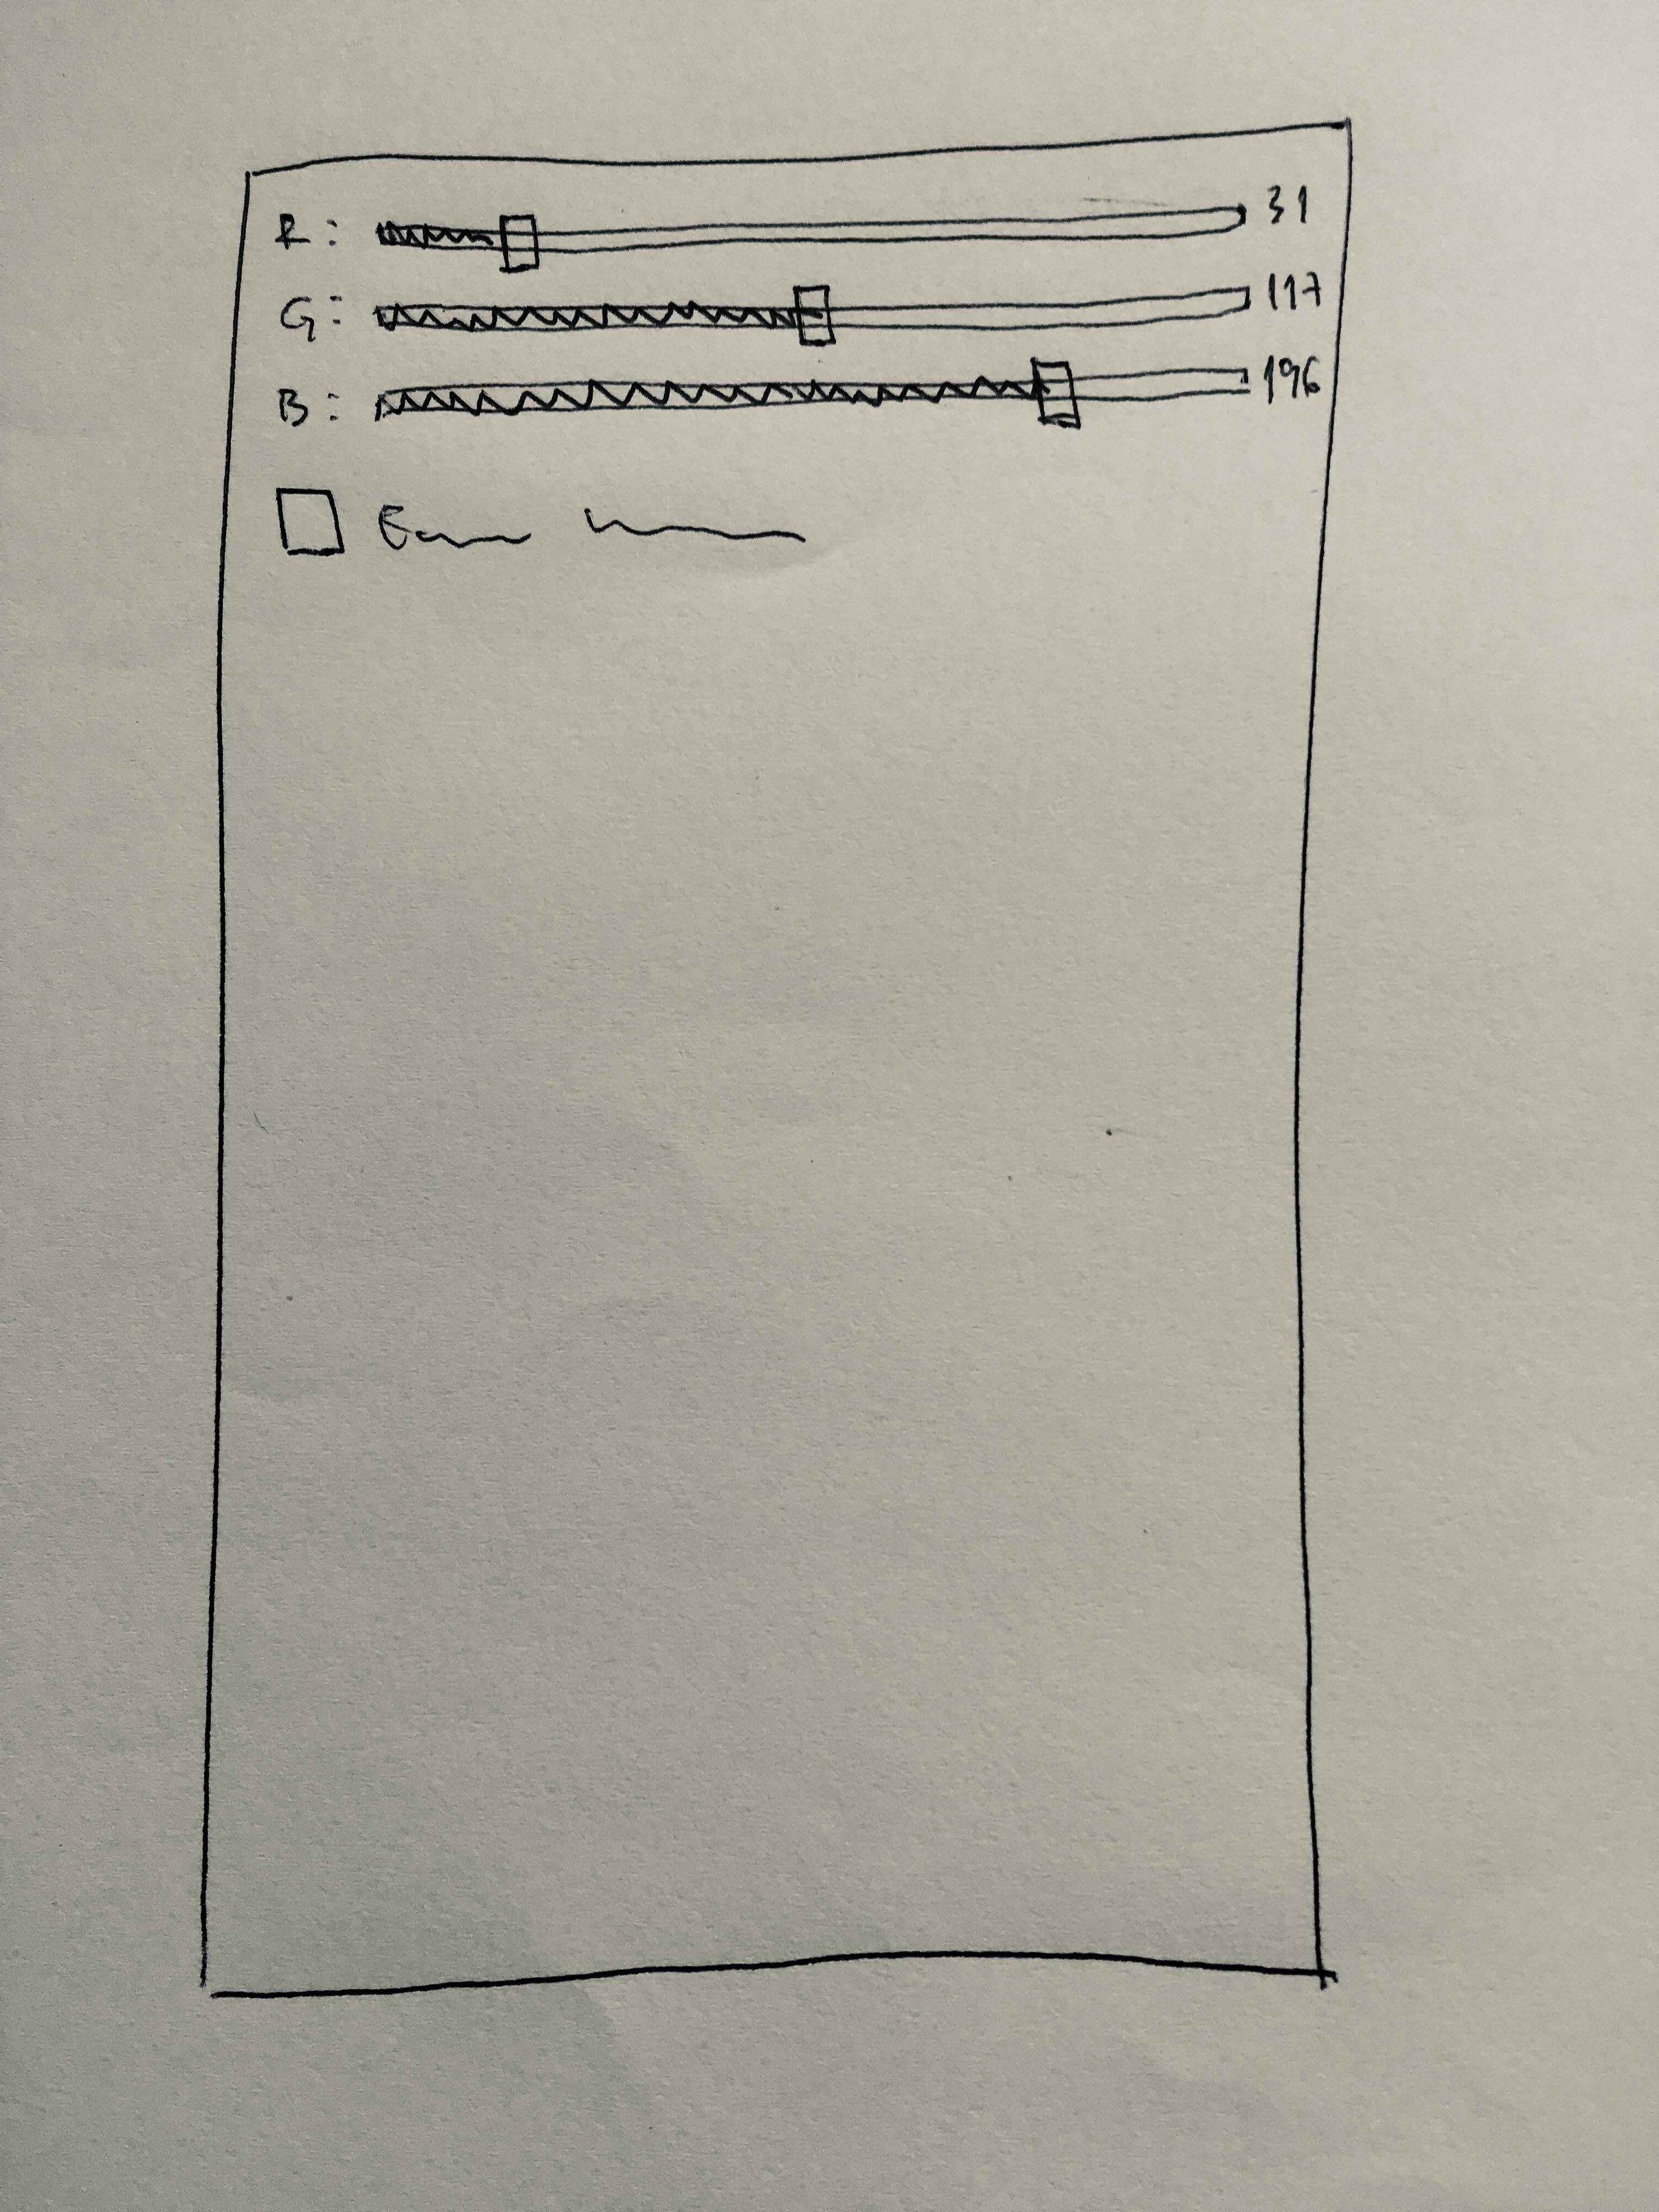 R: 31
G: 117
B: 196